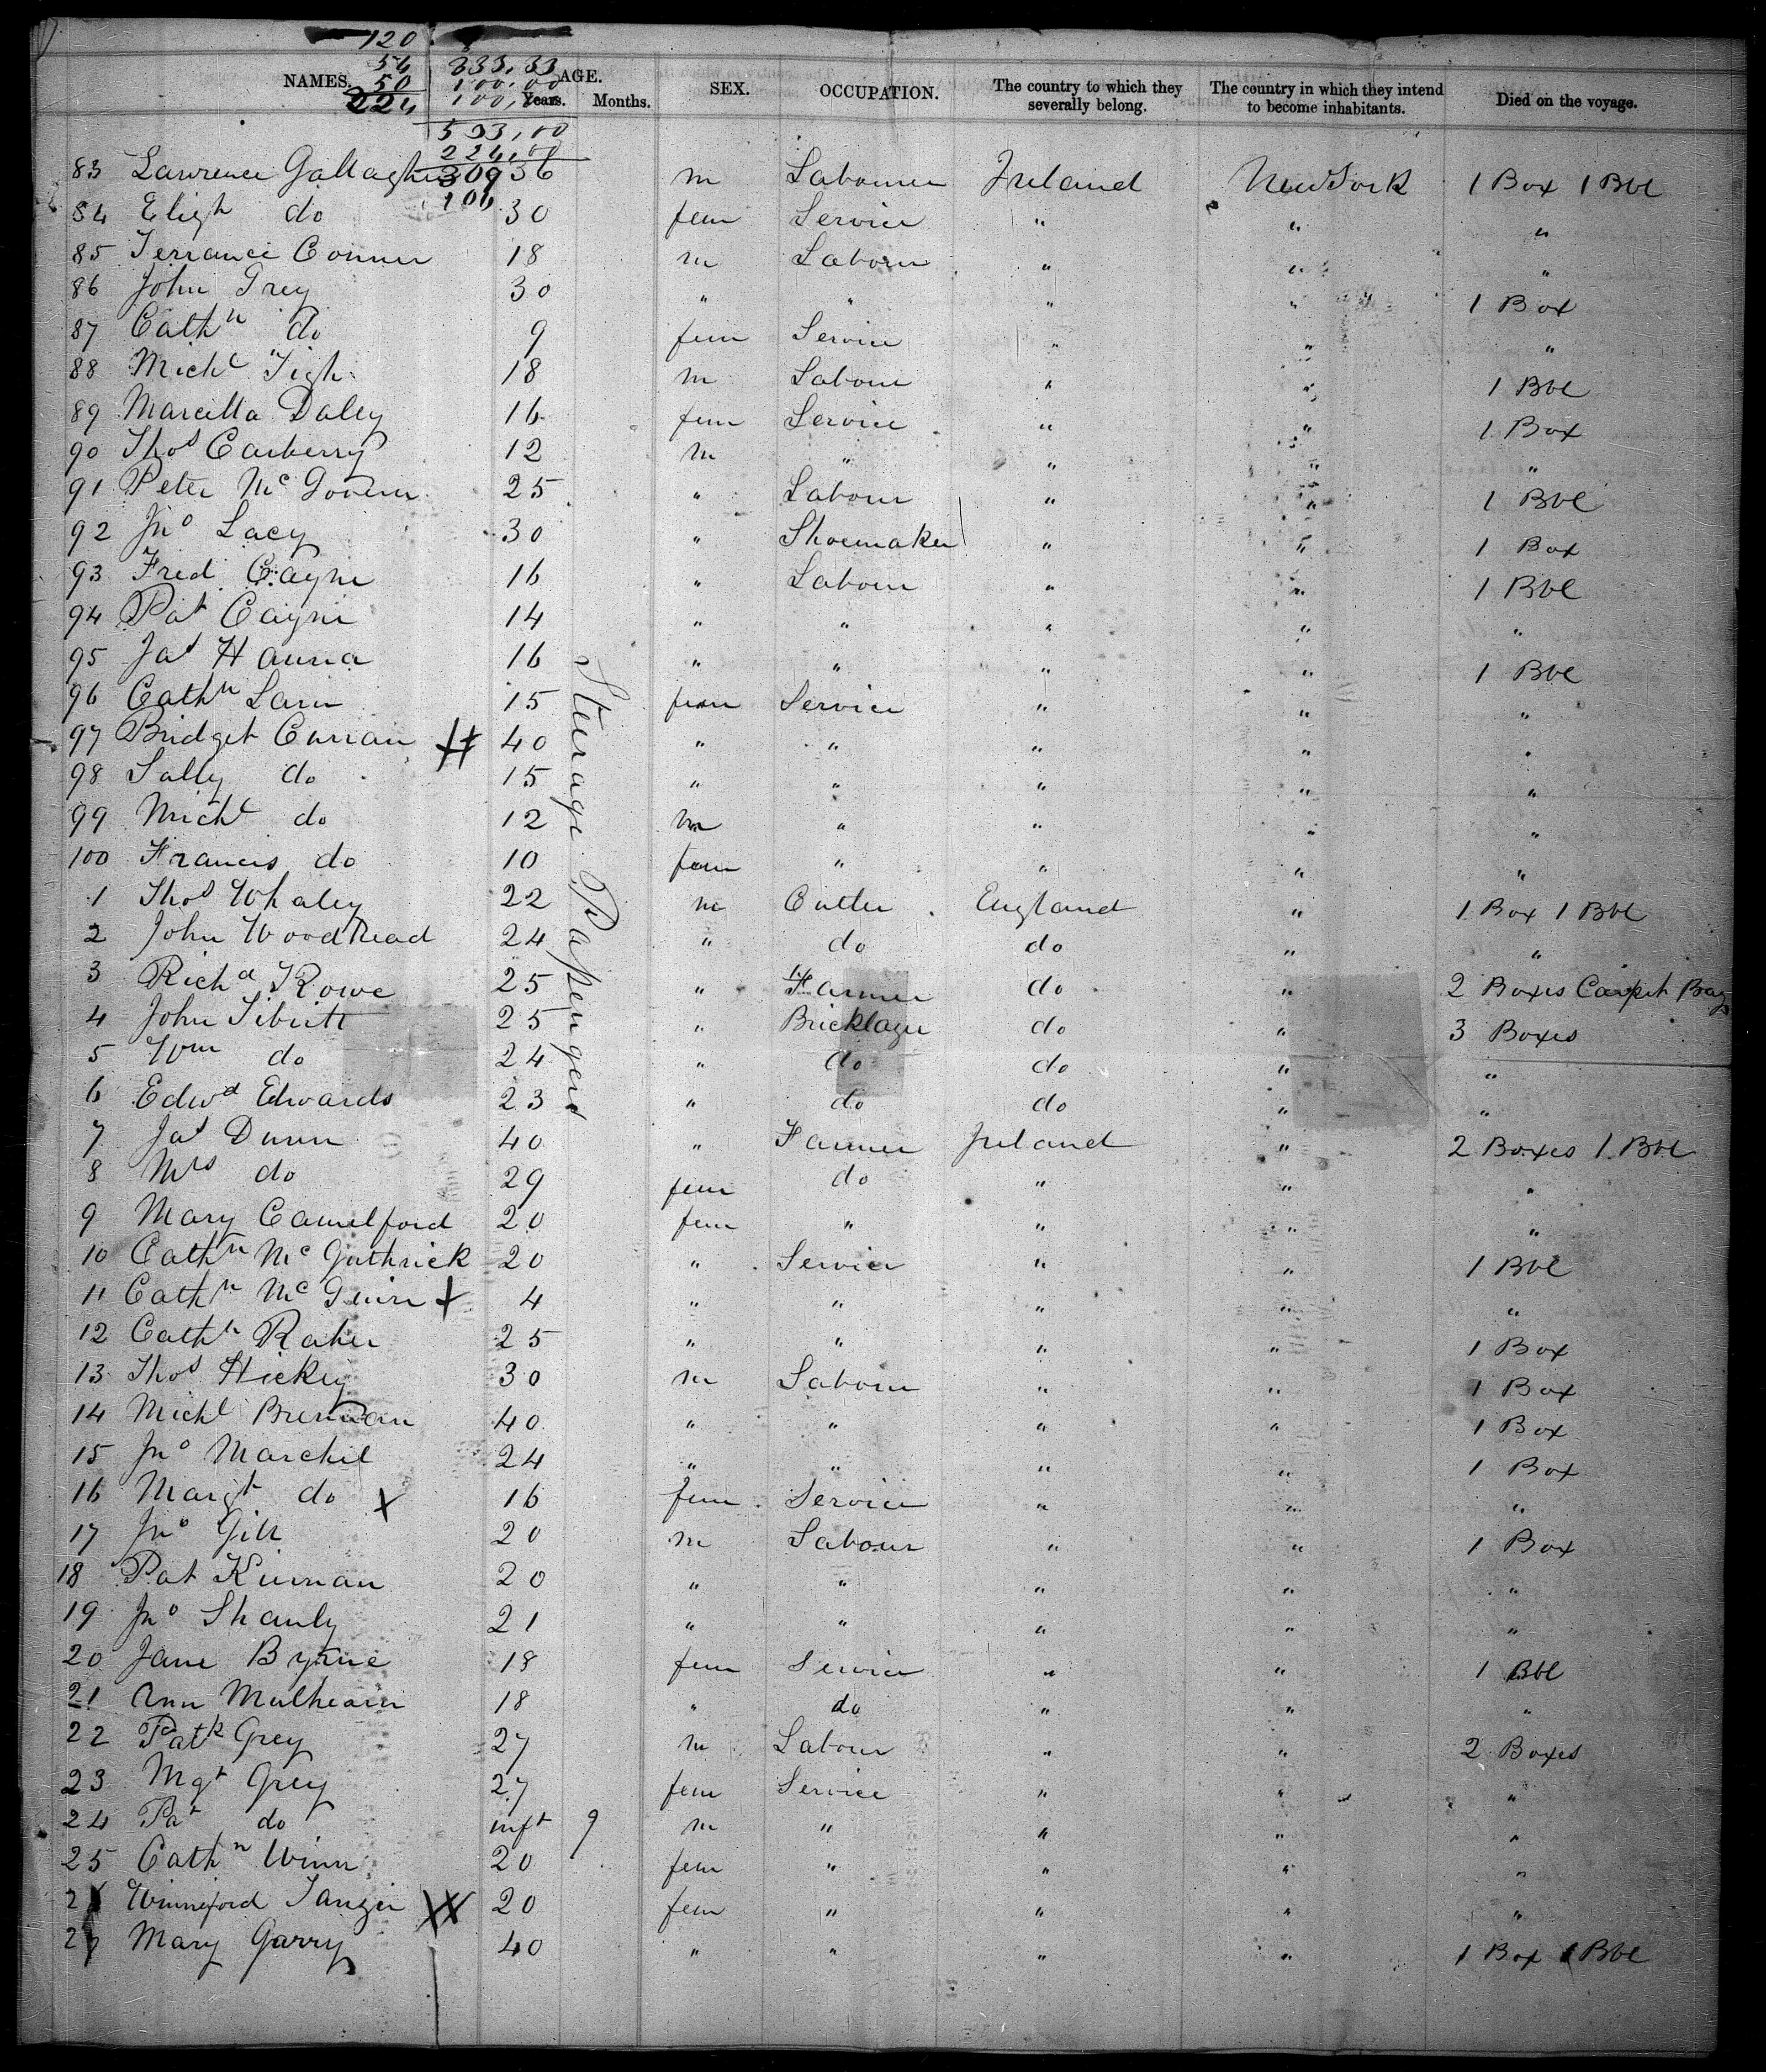 120
56 333,33
NAMES. 50 100,00 AGE. SEX. OCCUPATION. The country to which they severally belong. The country in which they intend to become inhabitants. Died on the voyage.
224 100,00 Years. Months.
533,00
224,00
309
106
83 Lawrence Gallagher 36 m Labourer Ireland New York 1 Box 1 Bbl
84 Eligh do 30 fem Service " " "
85 Terrance Conner 18 m Labour " " "
86 John Grey 30 " " " " 1 Box
87 Cathn do 9 fem Service " " "
88 Michl Tigh 18 m Labour " " 1 Bbl
89 Marcella Daley 16 fem Service " " 1 Box
90 Thos Carberry 12 m " " " "
91 Peter Mc Govern 25 " Labour " " 1 Bbl
92 Jno Lacy 30 " Shoemaker " " 1 Box
93 Fred Cayne 16 " Labour " " 1 Bbl
94 Pat Cayne 14 " " " " "
95 Jas Hanna 16 " " " " 1 Bbl
96 Cathn 15 fem Service " " "
97 Bridget Curran 40 " " " " "
98 Sally do 15 " " " " "
99 Michl do 12 m " " " "
100 Francis do 10 fem " " " "
Steerage Passengers
1 Thos Whaley 22 m Cutler England " 1 Box 1 Bbl
2 John Woodhead 24 " do do " "
3 Richd Rowe 25 " Farmer do " 2 Boxes Carpet Bag
4 John 25 " Bricklayer do " 3 Boxes
5 Wm do 24 " do do " "
6 Edwd Edwards 23 " do do " "
7 Jas Dunn 40 " Farmer Ireland " 2 Boxes 1 Bbl
8 Mrs do 29 fem do " " "
9 Mary Camelford 20 fem " " " "
10 Cathn Mc Guthrick 20 " Service " " 1 Bbl
11 Cathn Mc 4 " " " " "
12 Cathn Raher 25 " " " " 1 Box
13 Thos Hickey 30 m Labour " " 1 Box
14 Michl Brennan 40 " " " " 1 Box
15 Jno Marchil 24 " " " " 1 Box
16 Margt do X 16 fem Service " " "
17 Jno Gill 20 m Labour " " 1 Box
18 Pat Kiernan 20 " " " " "
19 Jno Shanly 21 " " " " "
20 Jane Byrne 18 fem Service " " 1 Bbl
21 Ann Mulhearn 18 " do " " "
22 Patk Grey 27 m Labour " " 2 Boxes
23 Mgt Grey 27 fem Service " " "
24 Pat do inft 9 m " " " "
25 Cathn Winn 20 fem " " " "
26 Winneford XX 20 fem " " " "
27 Mary Garry 40 " " " " 1 Box 1 Bbl